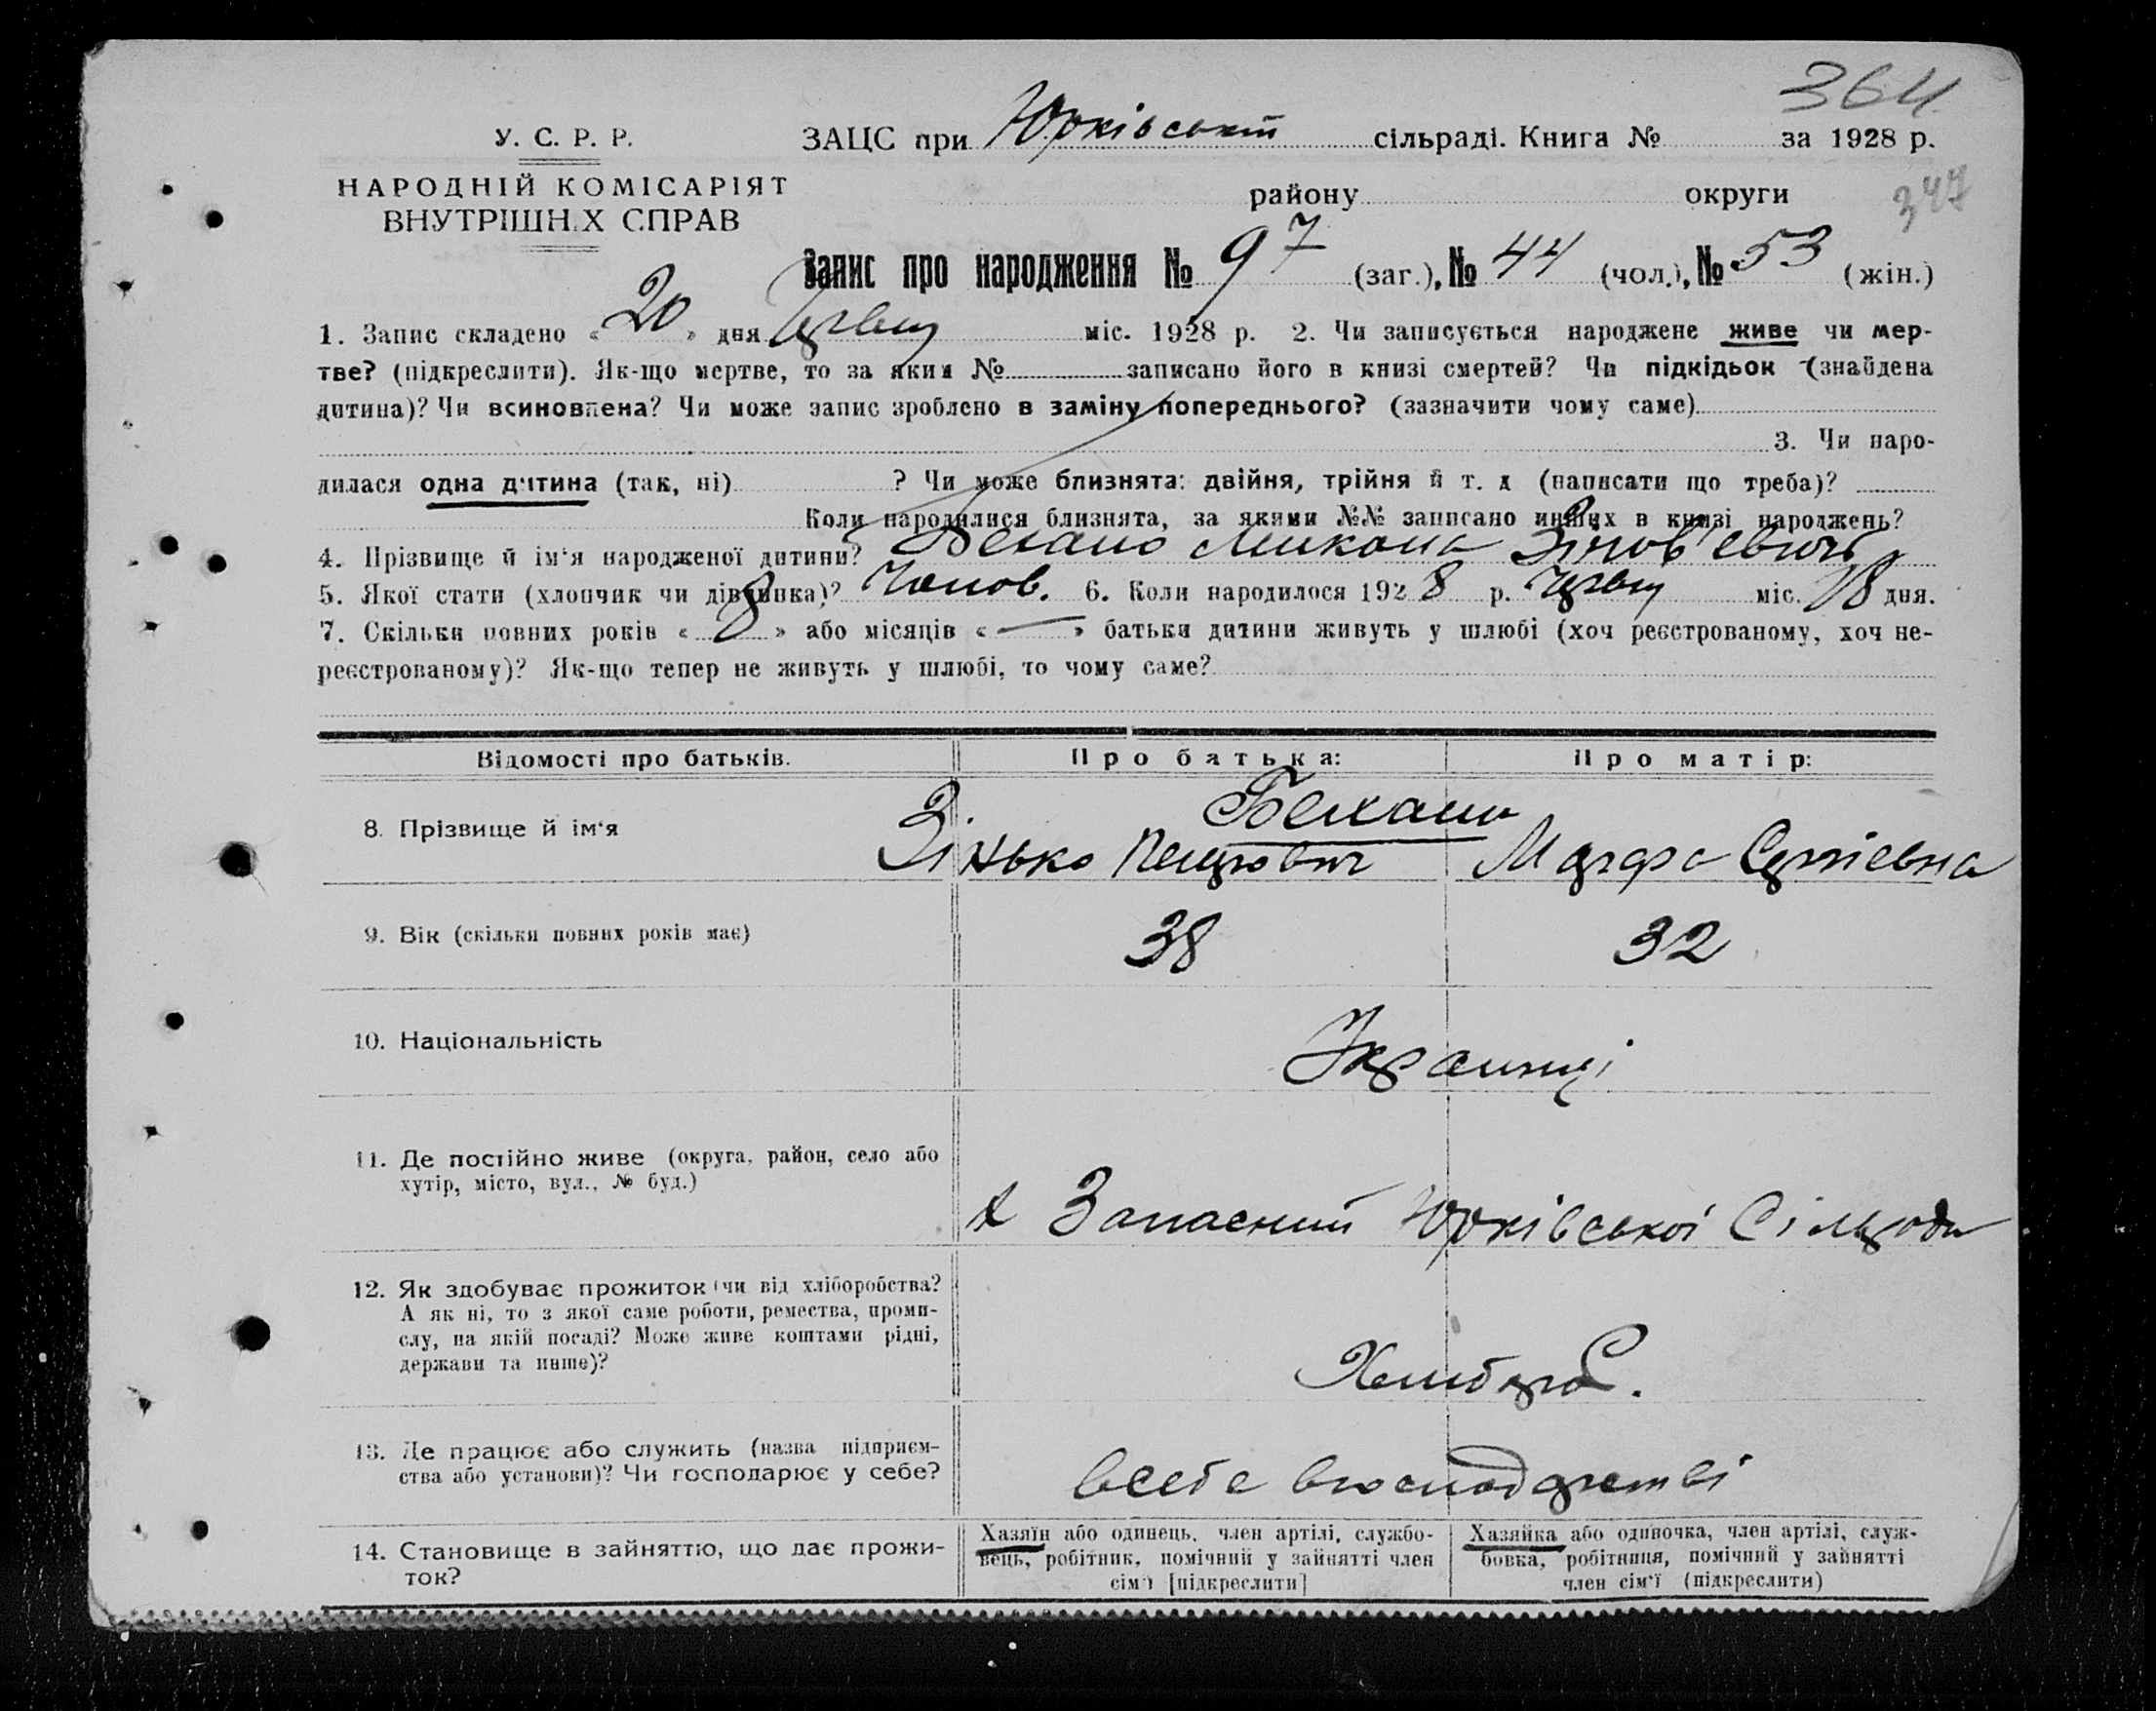 364
У. С. Р. Р.
ЗАЦС при Юрківській сільраді. Книга № за 1928 р.
НАРОДНІЙ КОМІСАРІЯТ
ВНУТРІШН.Х СПРАВ
району округи
347
Запис про народження № 97 (заг.), № 44 (чол.), № 53 (жін.)
1. Запис складено « 20 » дня міс. 1928 р. 2. Чи записується народжене живе чи мер-
тве? (підкреслити). Як-що мертве, то за яким № записано його в книзі смертей? Чи підкідьок (знайдена
дитина)? Чи всиновлена? Чи може запис зроблено в заміну попереднього? (зазначити чому саме)
3. Чи наро-
дилася одна дитина (так, ні) ? Чи може близнята: двійня, трійня й т. д (написати що треба)?
Коли народилися близнята, за якими №№ записано инших в книзі народжень?
4. Прізвище й ім‘я народженої дитини? Микола Зінов'евич
5. Якої стати (хлопчик чи дівчинка)? Чолов. 6. Коли народилося 1928 р. міс. 18 дня.
7. Скільки повних років « 8 » або місяців « — » батьки дитини живуть у шлюбі (хоч реєстрованому, хоч не-
реєстрованому)? Як-що тепер не живуть у шлюбі, то чому саме?
Відомості про батьків. Про батька: Про матір:
8. Прізвище й ім‘я
Зінько Петрович Сергіевна
9. Вік (скільки повних років має) 38 32
10. Національність Українці
11. Де постійно живе (округа, район, село або
хутір, місто, вул., № буд.)
х Запасний Юрківської Сільради
12. Як здобуває прожиток (чи від хліборобства?
А як ні, то з якої саме роботи, ремества, проми-
слу, на якій посаді? Може живе коштами рідні,
держави та инше)?
Хлибороб.
13. Де працює або служить (назва підприєм-
ства або установи)? Чи господарює у себе?
всебе вгосподарстві
14. Становище в зайняттю, що дає прожи-
ток?
Хазяїн або одинець, член артілі, службо-
вець, робітник, помічний у зайнятті член
сім‘ї [підкреслити]
Хазяйка або одиночка, член артілі, служ-
бовка, робітниця, помічний у зайнятті
член сім‘ї (підкреслити)